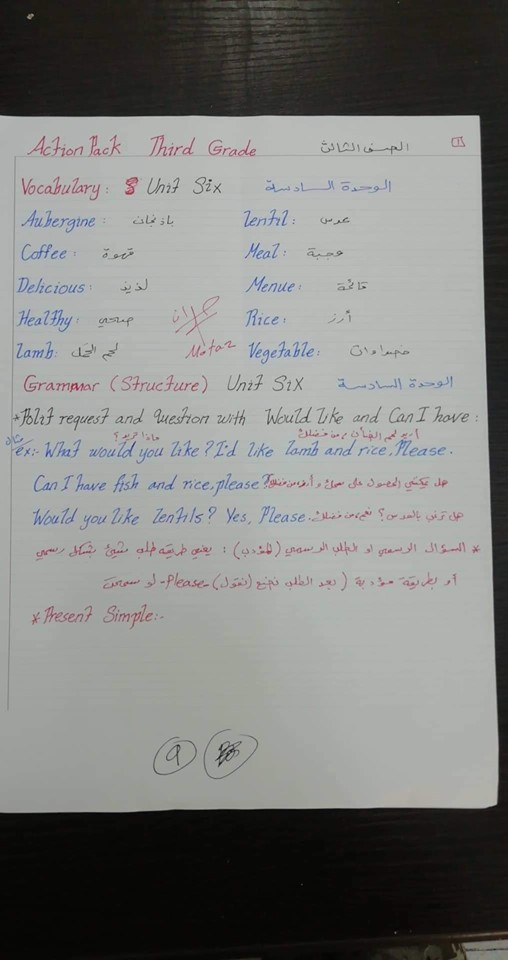 Action Pack Third Grade الصف الثالث 1
Vocabulary: Unit Six الوحدة السادسة
Aubergine: باذنجان Lentil: عدس
Coffee: قهوة Meal: وجبة
Delicious: لذيذ Menue: قائمة
Healthy: صحي Rice: أرز
Motaz
Lamb: لحم الحمل Vegetable: خضراوات
Grammar (Structure) Unit Six الوحدة السادسة
*Polit request and question with Would like and Can I have:
ماذا تريد؟ أريد لحم الضأن من فضلك
مثال ex:- What would you like? I'd like lamb and rice, Please.
Can I have fish and rice, please? هل يمكنني الحصول على سمك وأرز من فضلك
Would you like lentils? Yes, Please. هل ترغب بالعدس؟ نعم، من فضلك
* السؤال الرسمي او الطلب الرسمي (المؤدب): يعني طريقة طلب شيئ بشكل رسمي
أو بطريقة مؤدبة (بعد الطلب نقول) Please- لو سمحت
* Present Simple:-
9